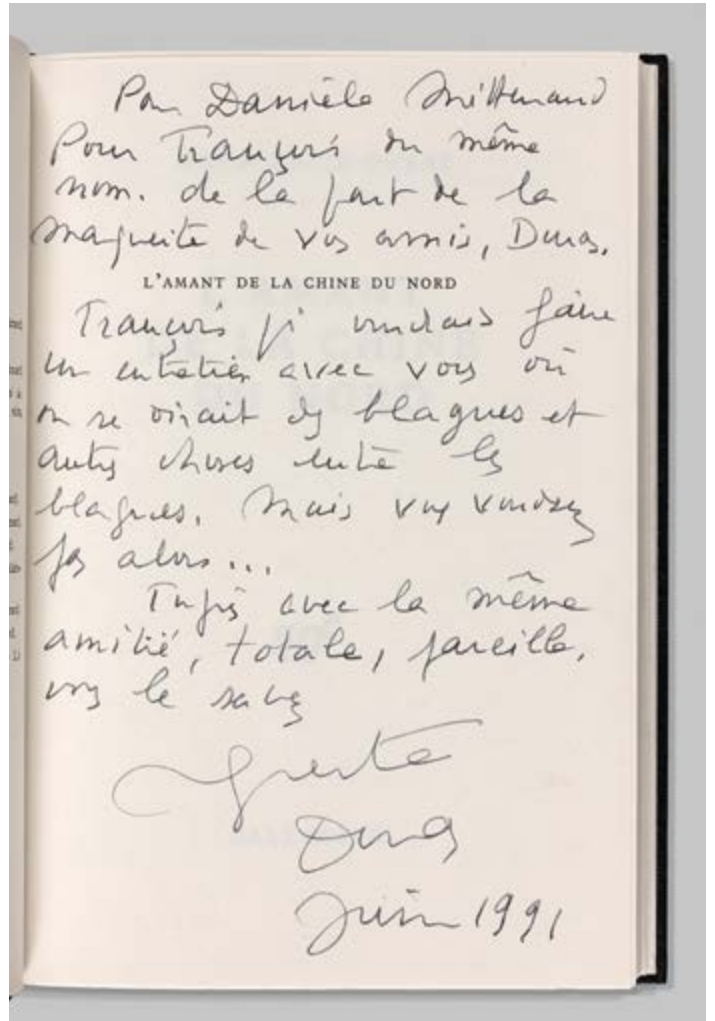 Pour Danièle Mitterrand
Pour François du même
nom. de la part de la
Marguerite de vos amis, Duras.
L'AMANT DE LA CHINE DU NORD
François je voudrais faire
un entretien avec vous où
on se dirait des blagues et
autres choses entre les
blagues. Mais vous voudrez
pas alors...
Tjrs avec la même
amitié, totale, pareille,
vous le savez
Duras
Juin 1991